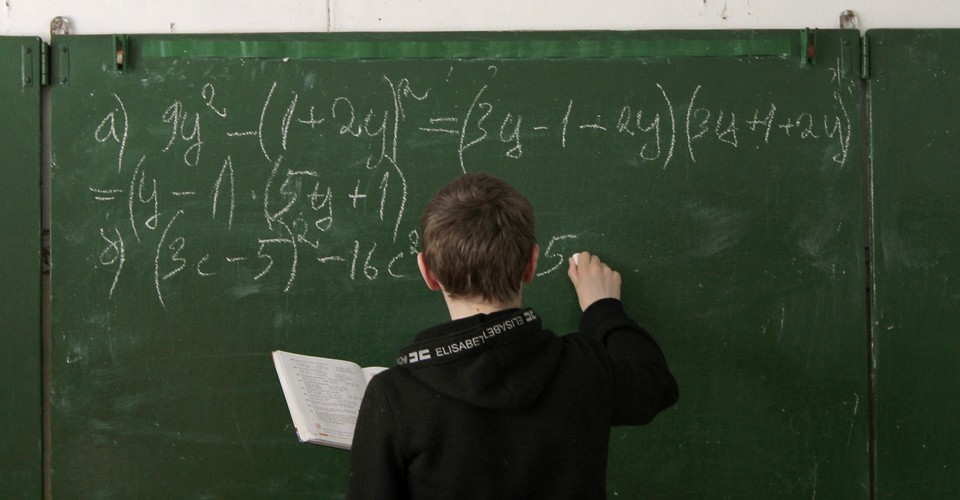 а) 9y² - (1+2y)² = (3y-1-2y)(3y+1+2y)
= (y-1)·(5y+1)
б) (3c-5)² - 16c² 5
ELISABET ELISABET